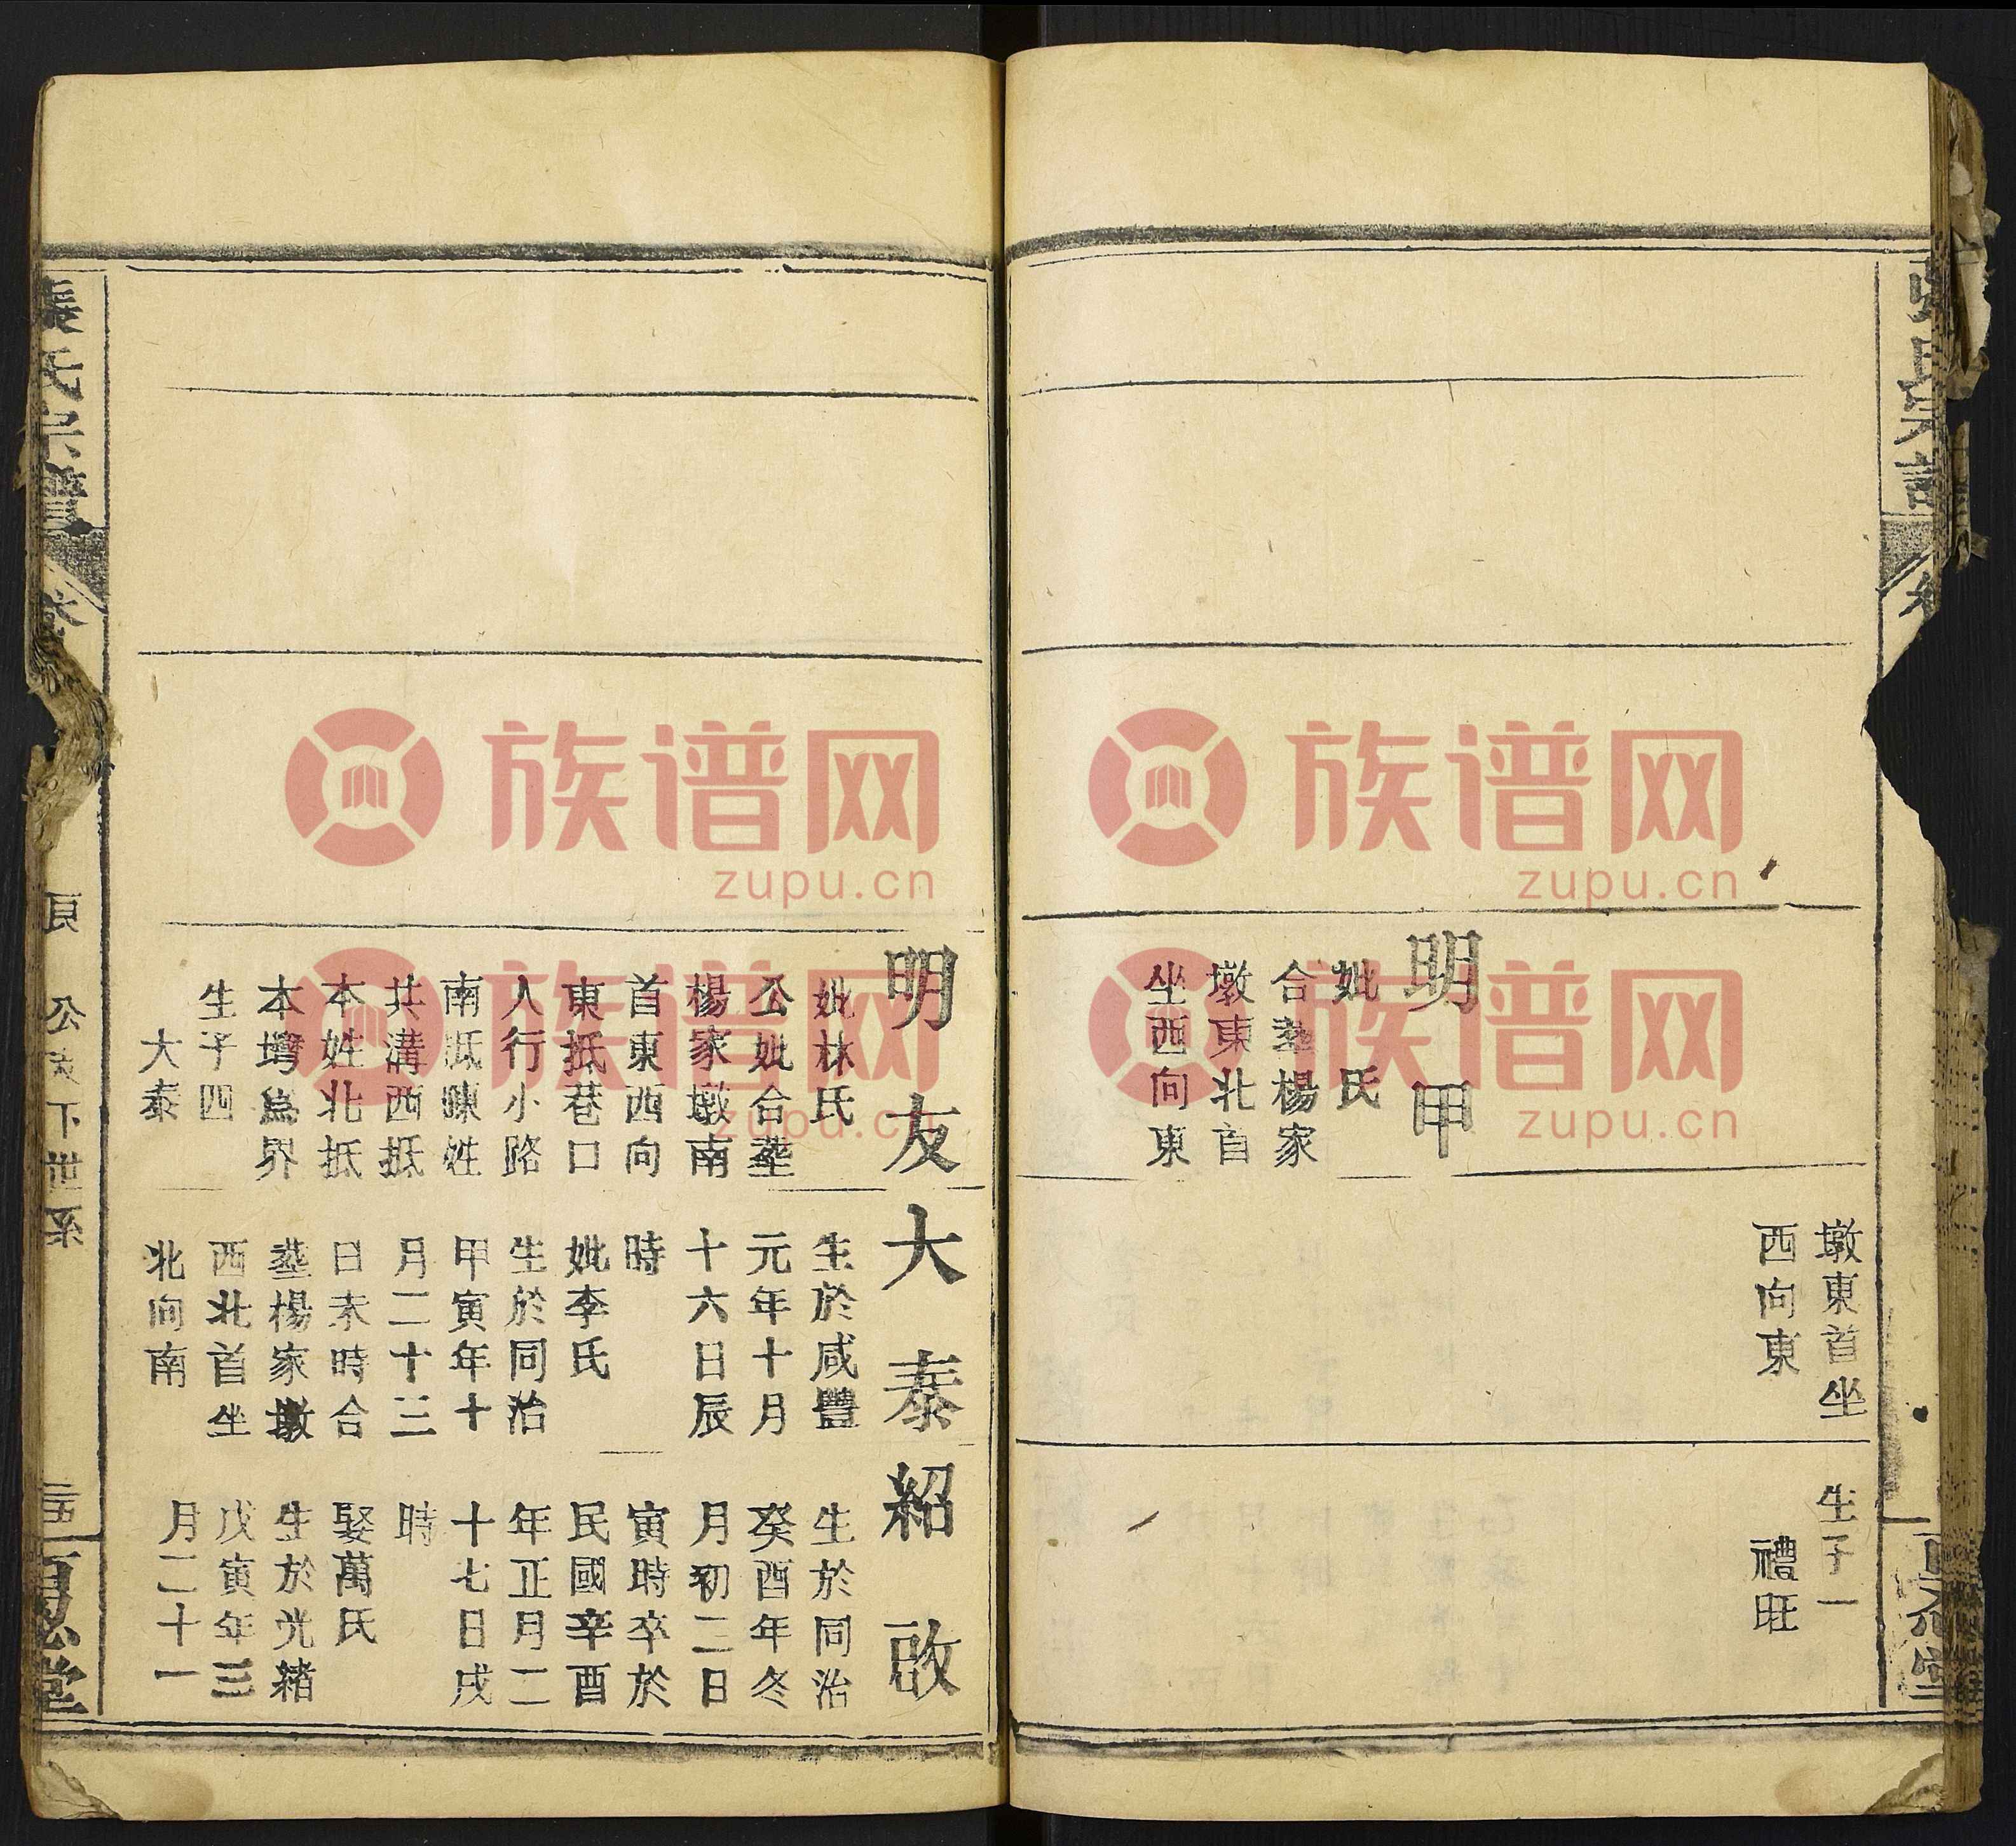 明甲
妣　氏
合塟楊家
墩東北首
坐西向東
墩東首坐
西向東
生子一
禮旺
明友
妣林氏
公妣合塟
楊家墩南
首東西向
東抵巷口
人行小路
南抵陳姓
共溝西抵
本姓北抵
本塆爲界
生子四
大泰
大泰
生於咸豐
元年十月
十六日辰
時
妣李氏
生於同治
甲寅年十
月二十三
日未時合
塟楊家墩
西北首坐
北向南
紹啟
生於同治
癸酉年冬
月初二日
寅時卒於
民國辛酉
年正月二
十七日戌
時
娶萬氏
生於光緒
戊寅年三
月二十一
氏宗譜
卷
公
下世系
堂
族谱网
zupu.cn
族谱网
zupu.cn
族谱网
zupu.cn
族谱网
zupu.cn